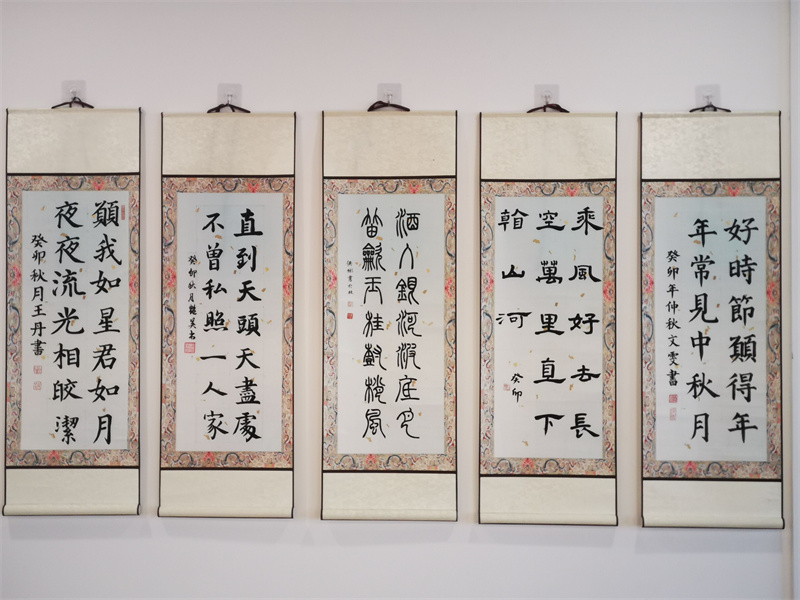 好時節願得年
年常見中秋月
癸卯年仲秋文雯書
乘風好去長
空萬里直下
看山河
癸卯
酒入銀河波底月
笛歙玉桂樹梢風
直到天頭天盡處
不曾私照一人家
癸卯秋月
願我如星君如月
夜夜流光相皎潔
癸卯秋月王丹書